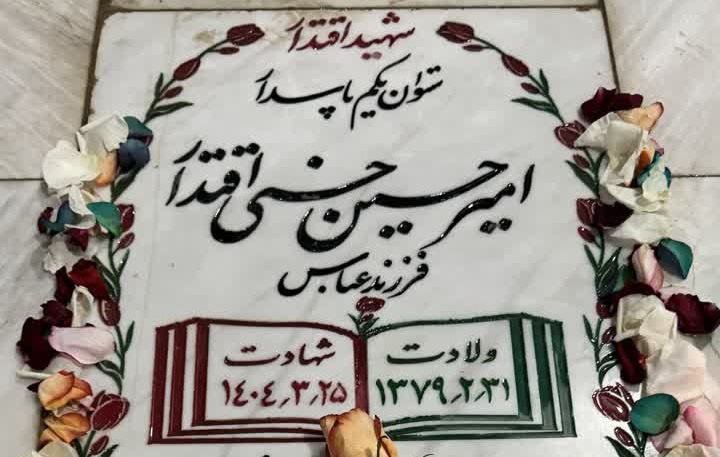 شهید اقتدار
ستوان یکم پاسدار
امیرحسین حسنی اقتدار
فرزند عباس
ولادت
۱۳۷۹٫۲٫۳۱
شهادت
۱۴۰۴٫۳٫۲۵